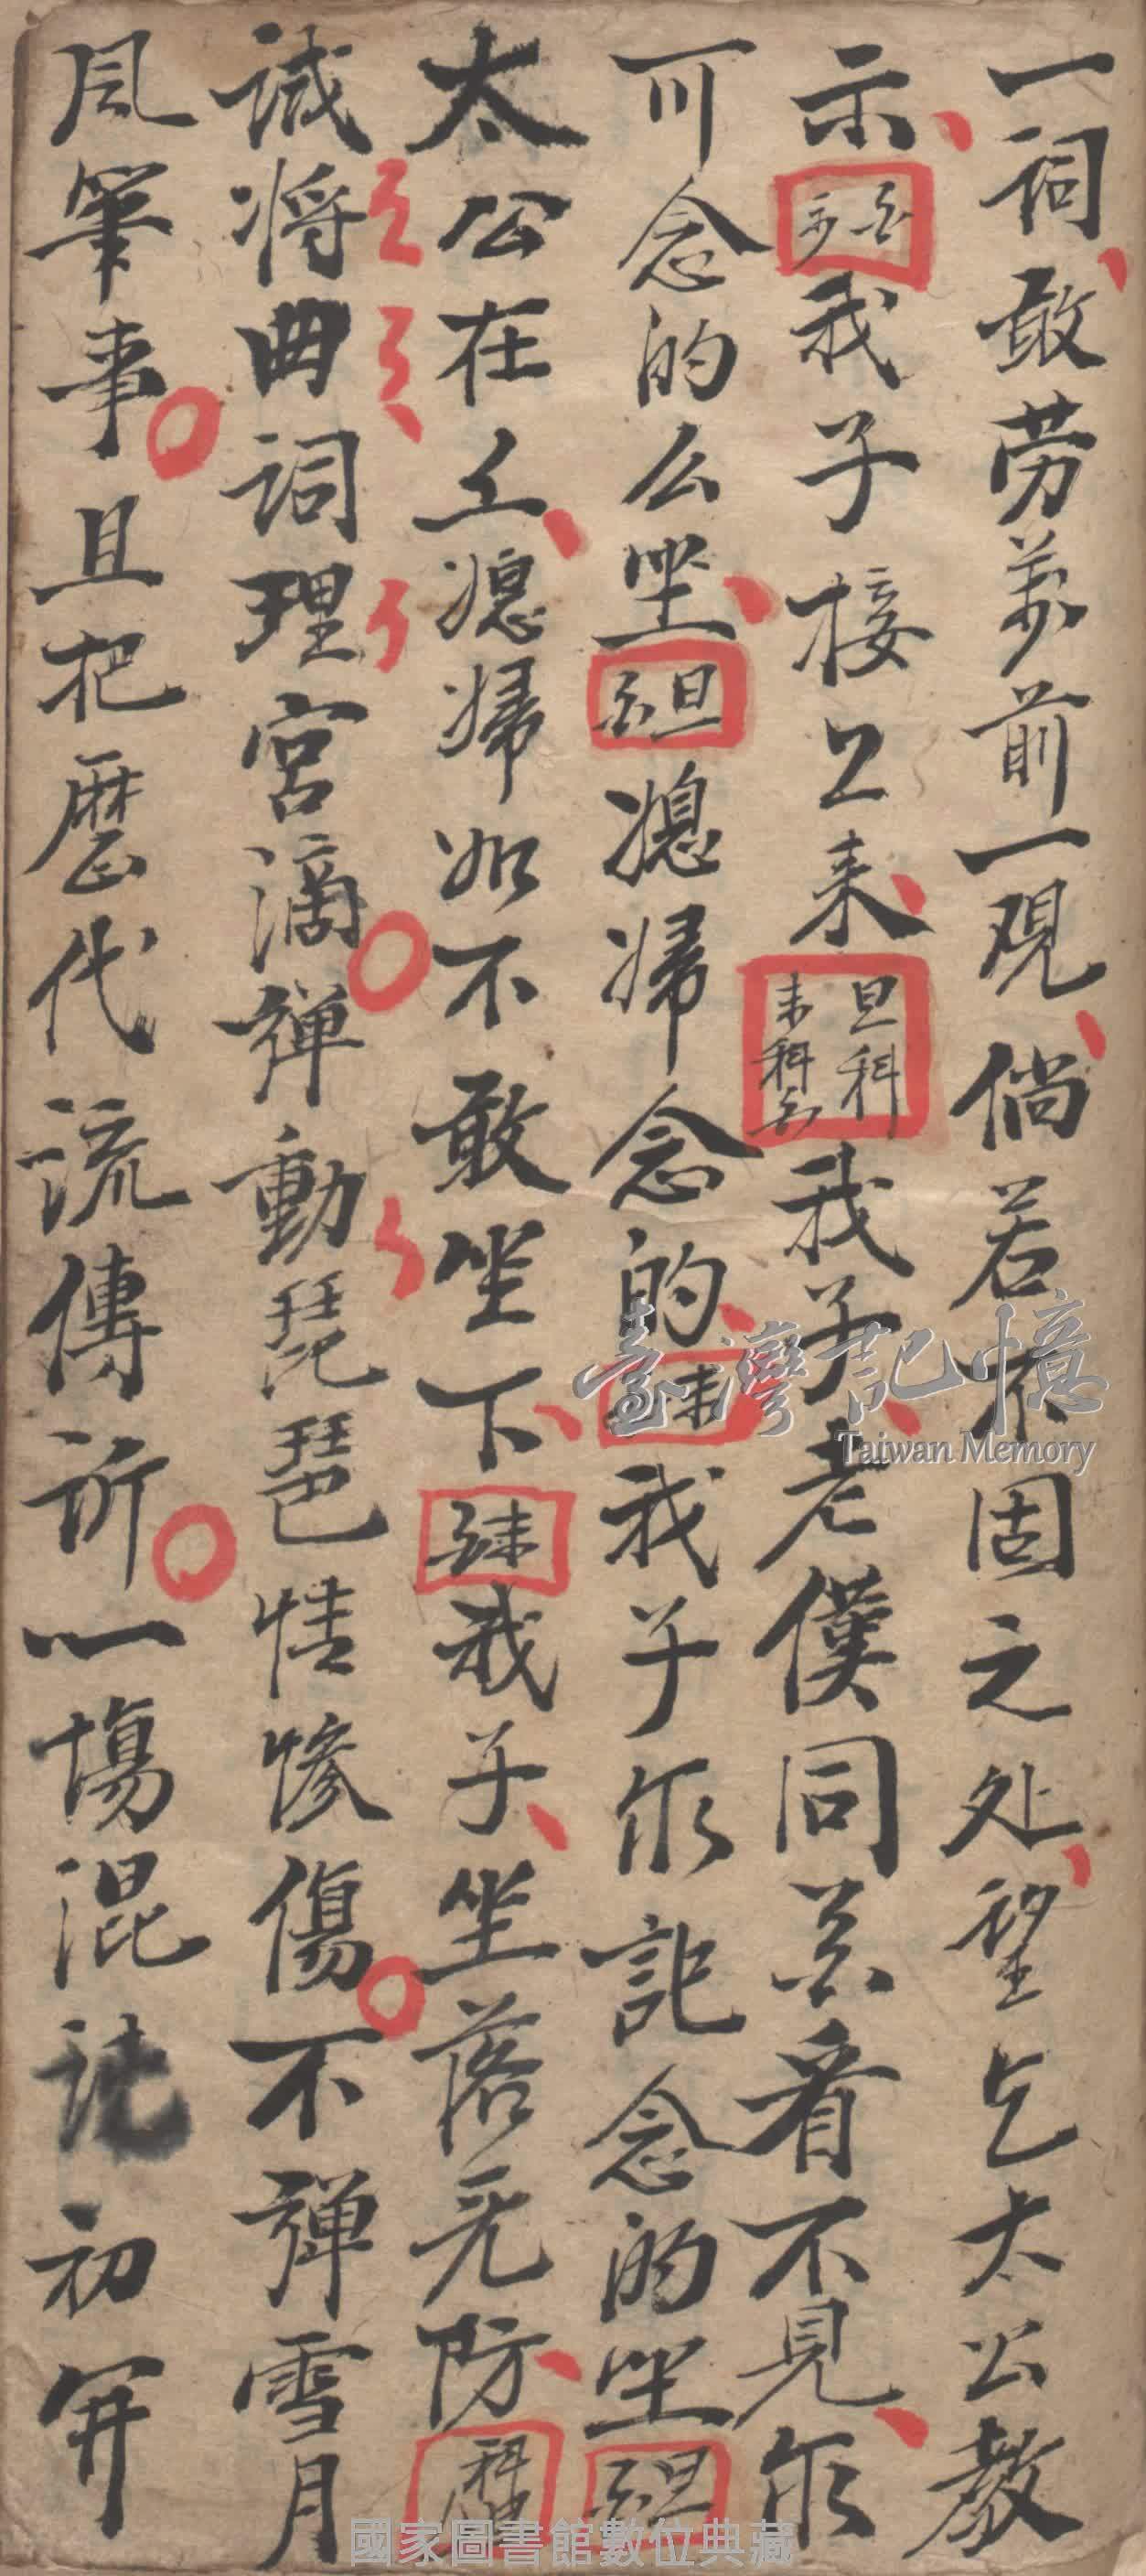 一詞敢劳爺前一观倘若不固之处望乞太公教
示 我子接上来 旦科 末科云 我子老僕同公看不見你
可念的么坐 旦云 媳婦念的 末云 我子你記念的坐 旦云
太公在上媳婦如不敢坐下 末云 我子坐落无防
诚将曲詞理宮滴弹動琵琶情惨傷不弹雪月
風筆事且把歷代流傳所一場混沌初開
臺灣記憶
Taiwan Memory
國家圖書館數位典藏